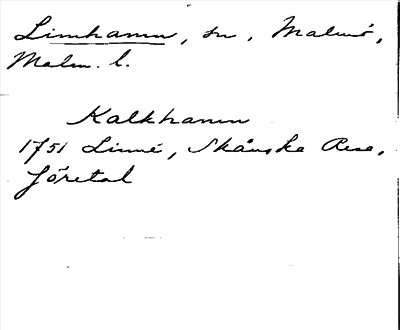 Limhamn, sn, Malmö,
Malm. l.
Kalkhamn
1751 Linné, Skånska Resa,
företal